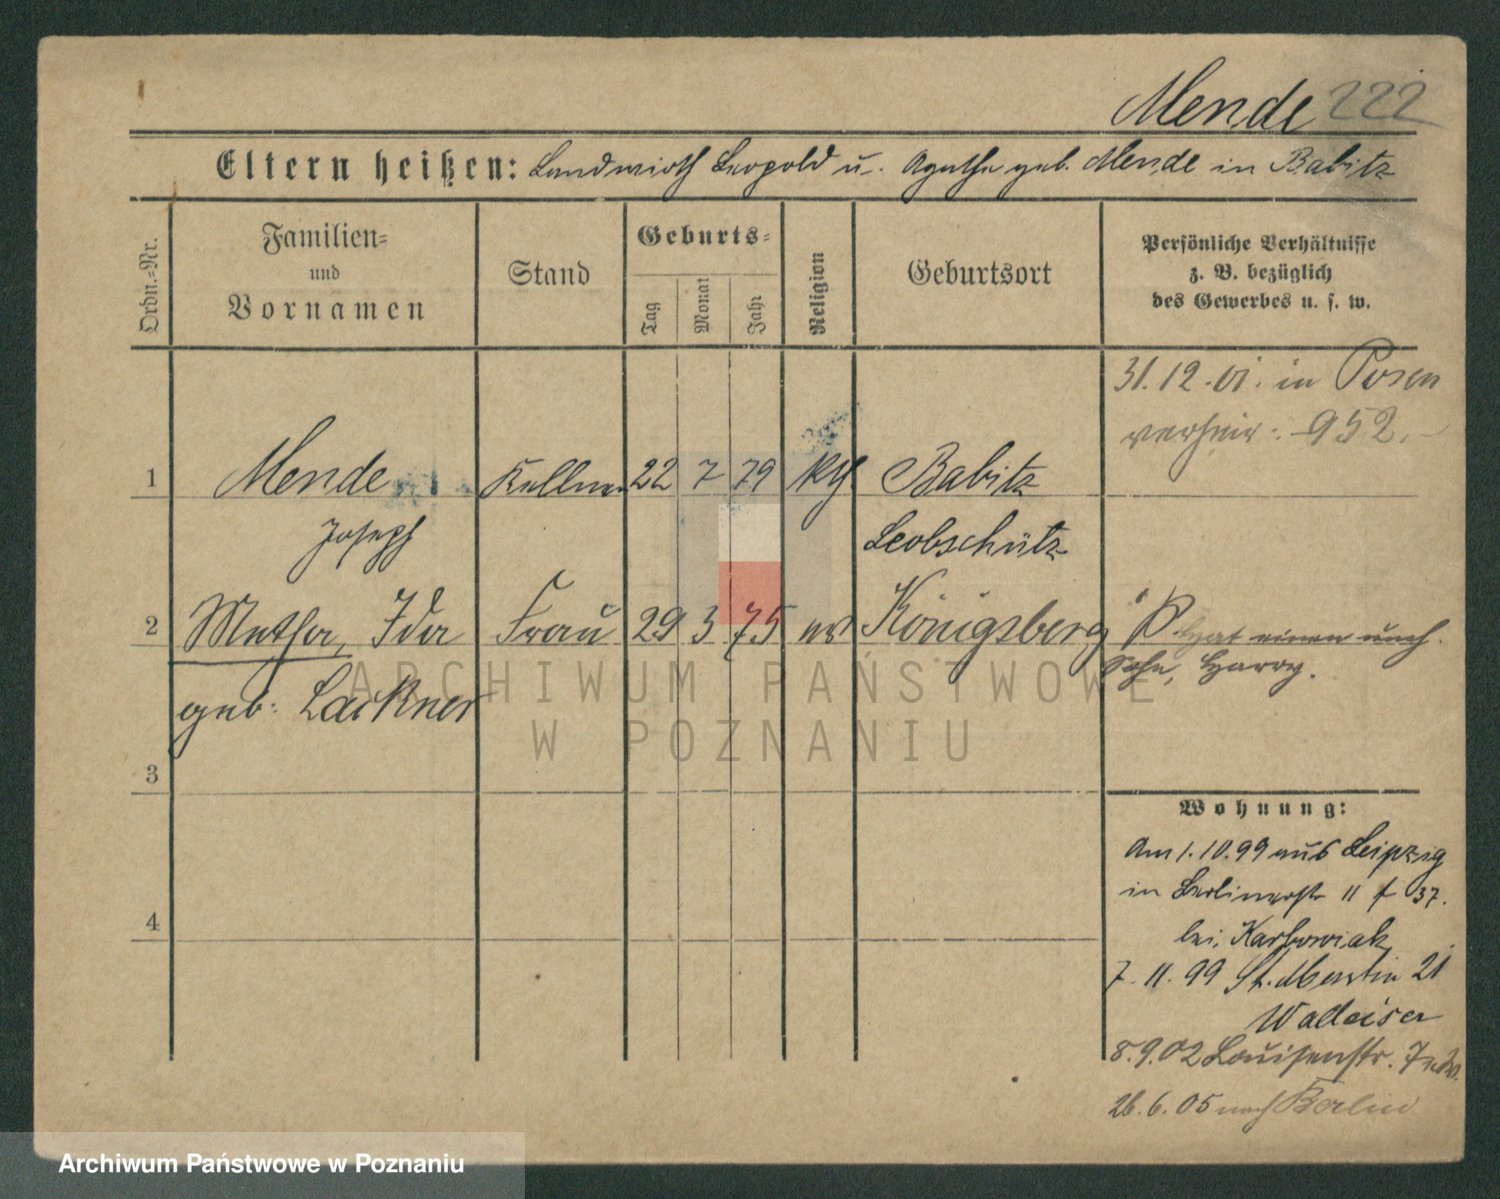 Mende 222
Eltern heißen: Landwirth Leopold u. Agathe geb. Mende in Babitz
Ordn.-Nr.
Familien-
und
Vornamen
Stand
Geburts-
Tag
Monat
Jahr
Religion
Geburtsort
Persönliche Verhältnisse
z. B. bezüglich
des Gewerbes u. s. w.
31.12.01. in Posen
verheir. 952.
1 Mende Kellner 22 7 79 kth Babitz
Joseph Leobschütz
2 Martha, Ida Frau 29 3 75 ev Königsberg P. hat einen uneh.
geb. Lackner Sohn, Harry.
3
4
Wohnung:
Am 1.10.99 aus Leipzig
in Berlinerstr 11 37.
bei Karbowiak
7.11.99 St. Martin 21
Walleiser
8.9.02 Louisenstr. 7
26.6.05 nach Berlin
ARCHIWUM PAŃSTWOWE
W POZNANIU
Archiwum Państwowe w Poznaniu